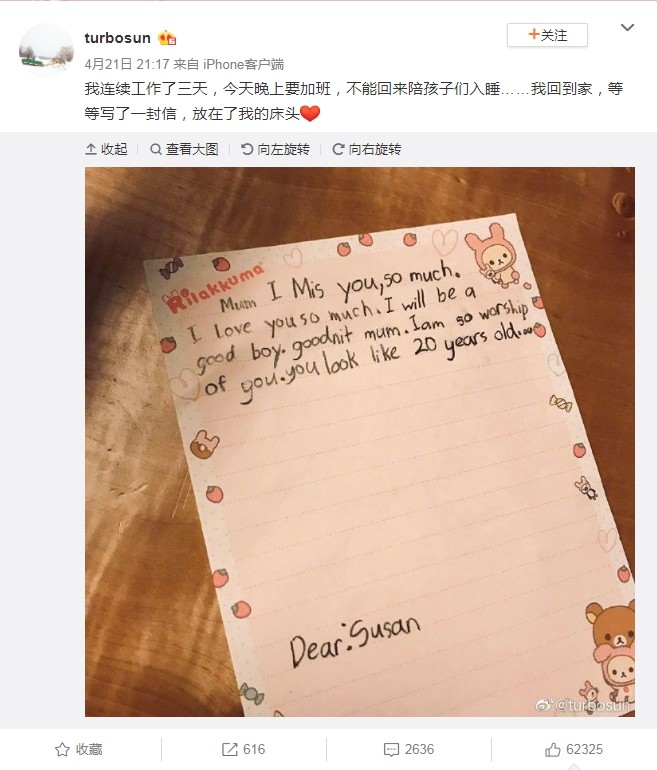 turbosun
+关注
4月21日 21:17 来自 iPhone客户端
我连续工作了三天，今天晚上要加班，不能回来陪孩子们入睡……我回到家，等
等写了一封信，放在了我的床头❤
收起 查看大图 向左旋转 向右旋转
Rilakkuma
Mum I Mis you,so much.
I love you so much.I will be a
good boy.goodnit mum.Iam so worship
of you.you look like 20 years old....
Dear:Susan
@turbosun
收藏 616 2636 62325